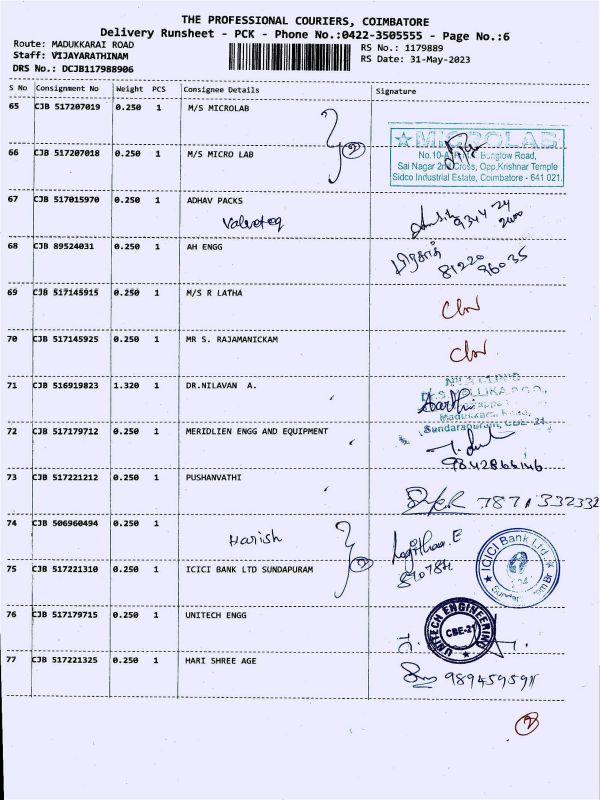 THE PROFESSIONAL COURIERS, COIMBATORE
Delivery Runsheet - PCK - Phone No.:0422-3505555 - Page No.:6
Route: MADUKKARAI ROAD
RS No.: 1179889
Staff: VIJAYARATHINAM
RS Date: 31-May-2023
DRS No.: DCJB117988906
S No Consignment No Weight PCS Consignee Details Signature
65 CJB 517207019 0.250 1 M/S MICROLAB
2
MICROLAB
66 CJB 517207018 0.250 1 M/S MICRO LAB
Bunglow Road,
Sai Nagar 2nd Cross, Opp.Krishnar Temple
Sidco Industrial Estate, Coimbatore - 641 021.
67 CJB 517015970 0.250 1 ADHAV PACKS
68 CJB 89524031 0.250 1 AH ENGG
81220 96035
69 CJB 517145915 0.250 1 M/S R LATHA
70 CJB 517145925 0.250 1 MR S. RAJAMANICKAM
71 CJB 516919823 1.320 1 DR.NILAVAN A.
Sundarapuram, CBE-21
72 CJB 517179712 0.250 1 MERIDLIEN ENGG AND EQUIPMENT
9842866146
73 CJB 517221212 0.250 1 PUSHANVATHI
7871332332
74 CJB 506960494 0.250 1
Harish
2
75 CJB 517221310 0.250 1 ICICI BANK LTD SUNDAPURAM
ICICI Bank Ltd
76 CJB 517179715 0.250 1 UNITECH ENGG
UNITECH ENGINEERING
CBE-21
77 CJB 517221325 0.250 1 HARI SHREE AGE
9894595911
2